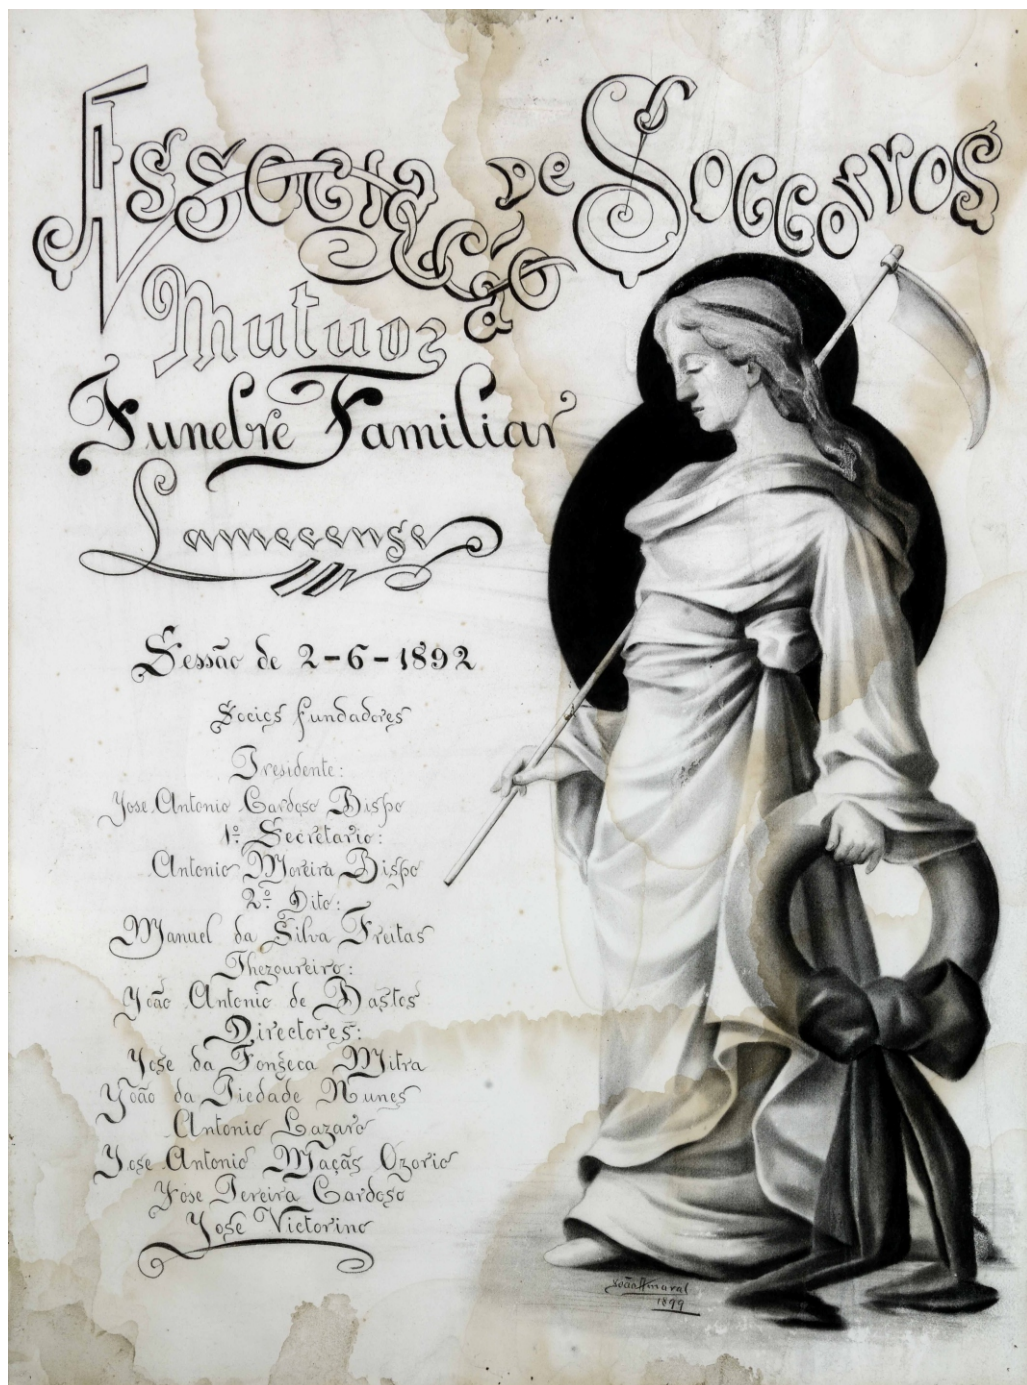 Associação de Soccorros
Mutuos
Funebre Familiar
Lamecense
Sessão de 2-6-1892
Socios fundadores
Presidente:
Jose Antonio Cardoso Bispo
1º Secretario:
Antonio Moreira Bispo
2º Dito:
Manuel da Silva Freitas
Thezoureiro:
João Antonio de Bastos
Directores:
Jose da Fonseca Mitra
João da Piedade Nunes
Antonio Lazaro
Jose Antonio Maçãs Ozorio
Jose Pereira Cardoso
Jose Victorino
João Amaral
1899